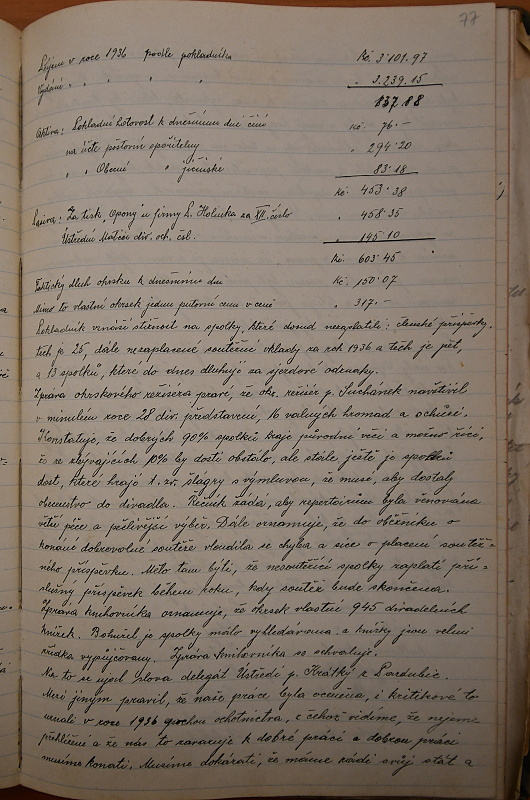 77
Příjem v roce 1936 podle pokladníka Kč. 3'101.97
Vydání " " " " " 3.239.15
137.18
Aktiva: Pokladní hotovost k dnešnímu dni činí Kč. 76.-
na účte poštovní spořitelny " 294.20
" " Obecné " jičínské 83.18
Kč. 453.38
Pasiva: Za tisk "Opony" u firmy L. Holinka za XII. číslo " 458.35
Ústřední Matici div. och. čsl. " 145.10
Kč. 603.45
Faktický dluh okrsku k dnešnímu dni Kč. 150.07
Mimo to vlastní okrsek jednu putovní cenu v ceně " 317.-
Pokladník vznáší stížnost na spolky, které dosud nezaplatili: členské příspěvky.
těch je 25, dále nezaplacené soutěžní vklady za rok 1936 a těch je pět,
a 13 spolků, které do dnes dluhuje za sjezdové odznaky.
Zpráva okrskového režiséra praví, že okr. režisér p. Suchánek navštívil
v minulém roce 28 div. představení, 16 valných hromad a schůzí.
Konstatuje, že dobrých 90% spolků hraje původní věci a možno říci,
že ze zbývajících 10% by dosti obstálo, ale stále ještě je spolků
dost, které hrají t. zv. šlágry s výmluvou, že musí, aby dostaly
obecenstvo do divadla. Řečník žádá, aby repertoirům byla věnována
větší péče a pečlivější výběr. Dále oznamuje, že do oběžníku o
konané dobrovolné soutěže vloudila se chyba a sice o placení soutěž-
ního příspěvku. Mělo tam býti, že nesoutěžící spolky zaplatí pří-
slušný příspěvek během roku, kdy soutěž bude skončena.
Zpráva knihovníka oznamuje, že okrsek vlastní 945 divadelních
knížek. Bohužel je spolky málo vyhledávána a knížky jsou velmi
zřídka vypůjčovány. Zpráva knihovníka se schvaluje.
Na to se ujal slova delegát Ústředí p. Krátký z Pardubic.
Mezi jiným pravil, že naše práce byla oceněna, i kritikové to
uznali v roce 1936 ochotnictva, z čehož vidíme, že nejsme
přehlíženi a že nás to zavazuje k dobré práci a dobrou práci
musíme konati. Musíme dokázati, že máme rádi svůj stát a